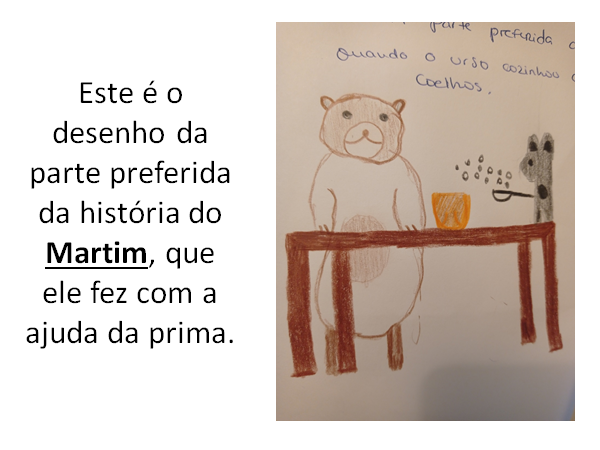 Este é o
desenho da
parte preferida
da história do
Martim, que
ele fez com a
ajuda da prima.
parte preferida
quando o urso cozinhou
Coelhos.